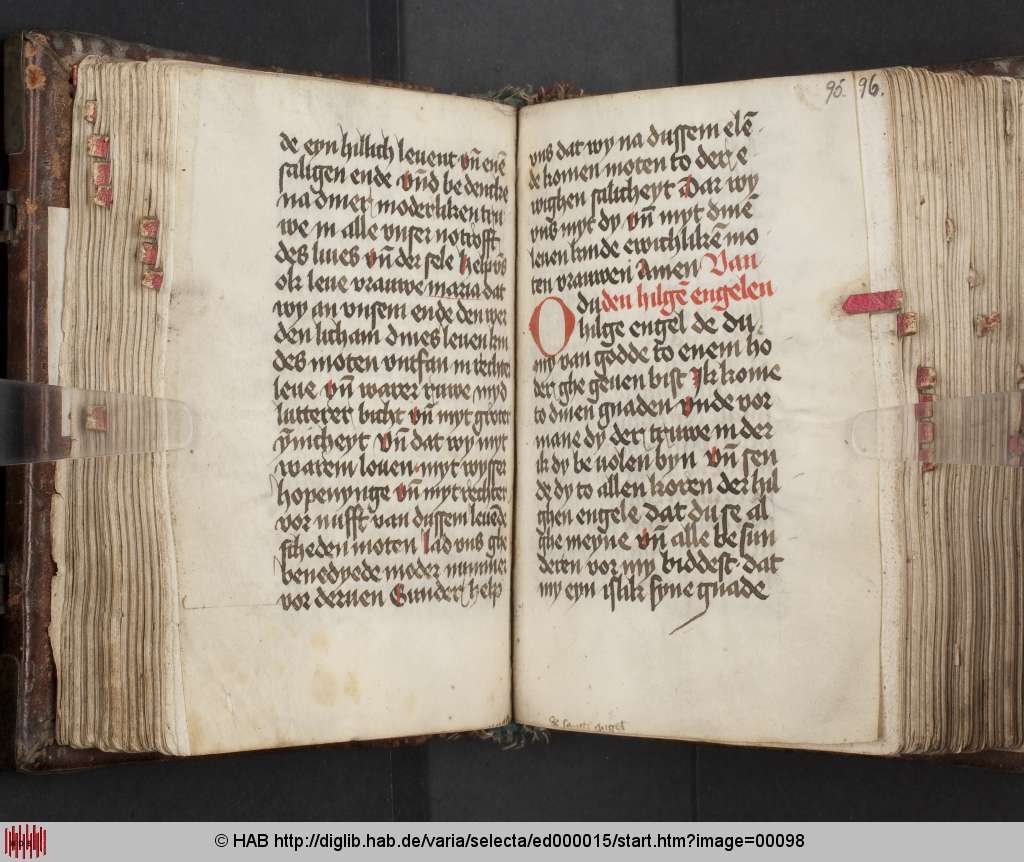 de eyn hillich leuent vn̄ enē
saligen ende vnd be dencke
na dyner moderliken tru
we in alle vnser notrofft
des liues vn̄ der sele help vns
ok leue vrauwe maria dat
wy an vnsem ende den wer
den licham dines leuen kin
des moten vntfan in rechter
leue vn̄ warer ruwe myd
lutterer bicht vn̄ myt groter
ynnicheyt vn̄ dat wy myt
warem louen myt wysser
hopenynge vn̄ myt rechter
vor nufft van dussem leuēde
scheden moten lad vns ghe
benedyede moder nummer
vor deruen Sunder help
95. 96.
vns dat wy na dussem elē
de komen moten to der e
wighen salicheyt Dar wy
vns myt dy vn̄ myt dinē
leuen kinde ewichlikē mo
ten vrauwen Amen Van
O du den hilgē engelen
hilge engel de du
my van godde to enem ho
der ghe geuen bist Ik kome
to dinen gnaden vnde vor
mane dy der truwe in der
ik dy be uolen byn vn̄ sen
de dy to allen koren der hil
ghen engele dat du se al
ghe meyne vn̄ alle be sun
deren vor my biddest dat
my eyn islik syne gnade
© HAB http://diglib.hab.de/varia/selecta/ed000015/start.htm?image=00098